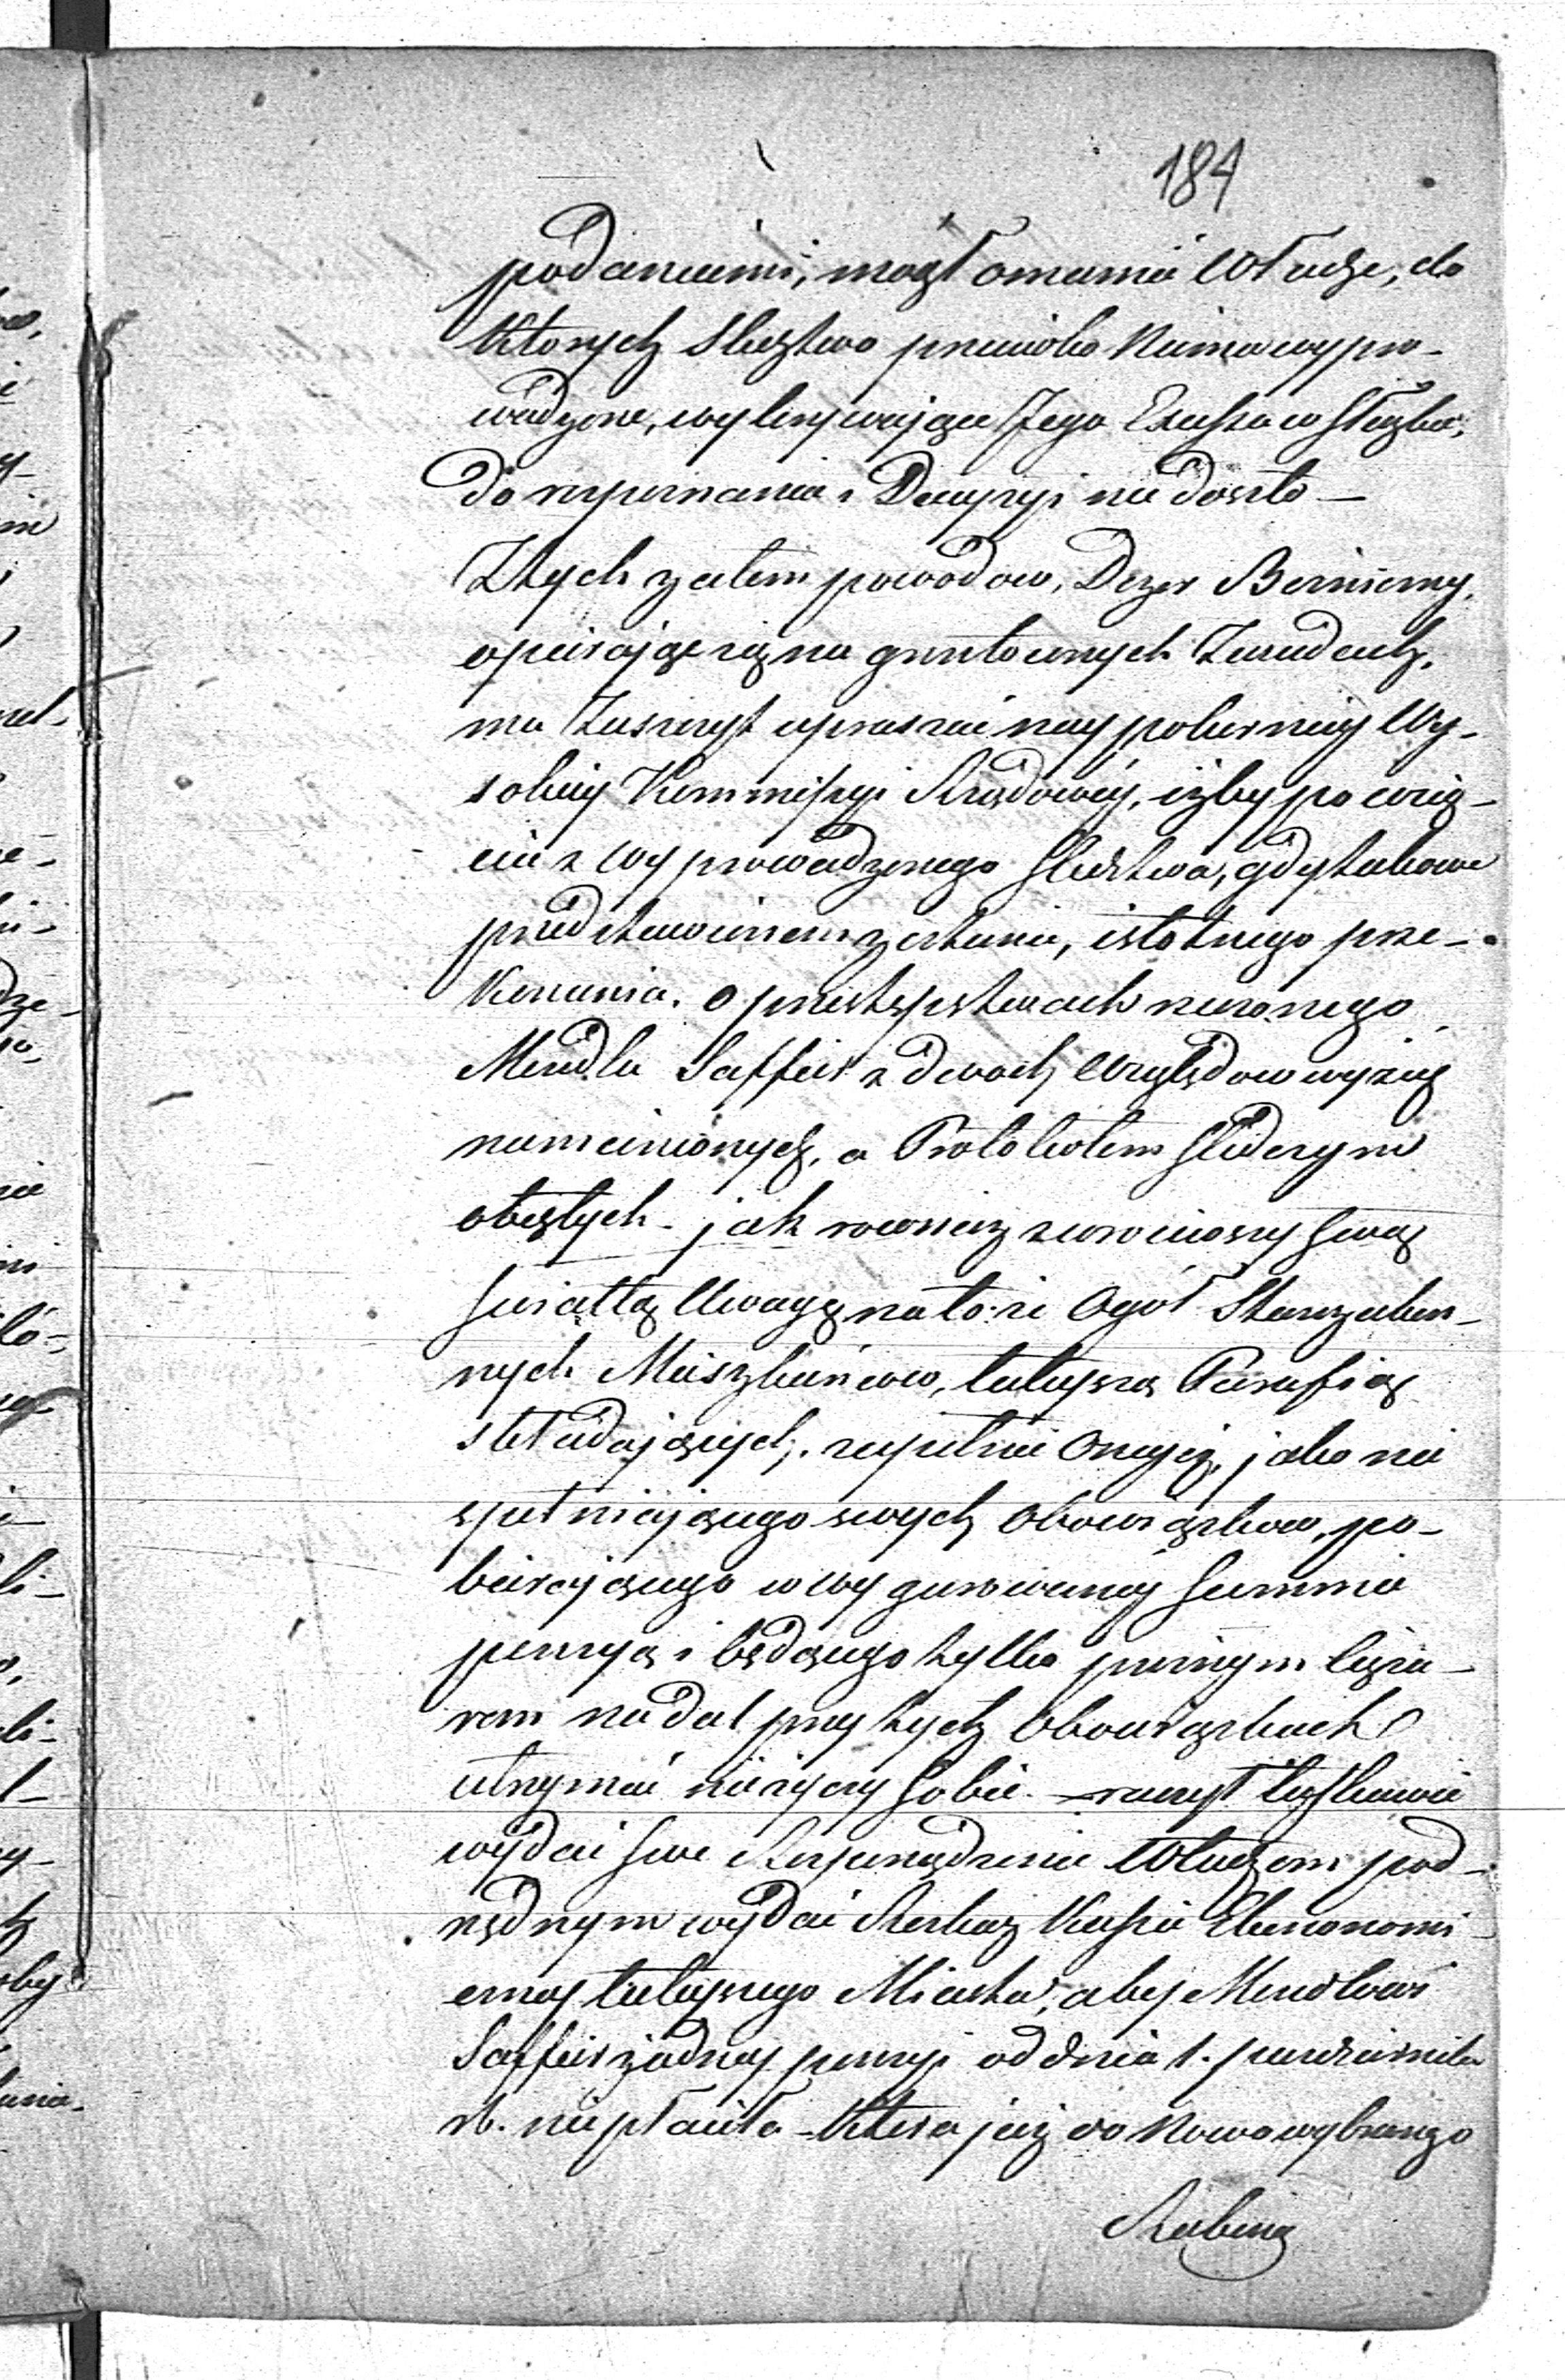 184
podaniami, mógł omamić Władze, do
których Sledztwo przeciwko Niemu wypro-
wadzone, wykrywające Jego Excessa w Służbie,
do rozpoznania i Decyzyi nie doszło —
Z tych zatem powodow, Dozor Bożniczny,
opierając się na gruntownych Zasadach,
ma Zaszczyt upraszać nay pokorniey Wy-
sokiey Kommissyi Rządowéy, iżby po wzię-
ciu z Wyprowadzonego Sledztwa, gdy takowe
przedstawionem zostanie, istotnego prze-
konania. o przestępstwach rzeczonego
Mendla Saffir z dwoch Względow wyżey
namienionych, a Protokołem Sledczym
objętych - jak rownież zwrociwszy swą
Swiatłą Uwagę na to: że Ogół Starozakon-
nych Mieszkańcow, tuteyszą Parafią
składających. zupełnie Onegoż, jako nie
spełniaiącego swych Obowiązkow, po-
bieraiącego w wygurowaney Summie
pensyą i będącego tylko prożnym cięża-
rem nadal przy tych Obowiązkach
utrzymać nie życzy sobie. — raczyła łaskawie
wydać Swe Rozporządzenie Władzom pod-
rzędnym wydać Rozkaz Kassie Ekonomi-
czney tuteyszego Miasta, aby Mendlowi
Saffir żadney pensyi od dnia 1. października
rb. nie płaciła - która już do Nowo wybranego
Rabina